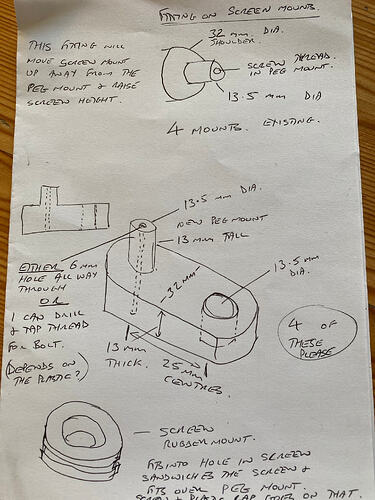 FIXING ON SCREEN MOUNTS.
32 mm DIA.
SHOULDER.
THIS FIXING WILL
MOVE SCREEN MOUNT
UP AWAY FROM THE
PEG MOUNT & RAISE
SCREEN HEIGHT.
SCREW THREAD
IN PEG MOUNT.
13.5 mm DIA
4 MOUNTS EXISTING.
13.5 mm DIA.
NEW PEG MOUNT
13 mm TALL
EITHER 6 mm
HOLE ALL WAY
THROUGH
OR
I CAN DRILL
& TAP THREAD
FOR BOLT.
(DEPENDS ON
THE PLASTIC?)
13.5 mm
DIA.
-32mm-
13 mm
THICK.
25 mm
CENTRES.
4 OF
THESE
PLEASE
SCREEN
RUBBER MOUNT.
FITS INTO HOLE IN SCREEN
SANDWICHES THE SCREEN &
FITS OVER PEG MOUNT.
SCREW & PLASTIC CAP GOES ON THAT.